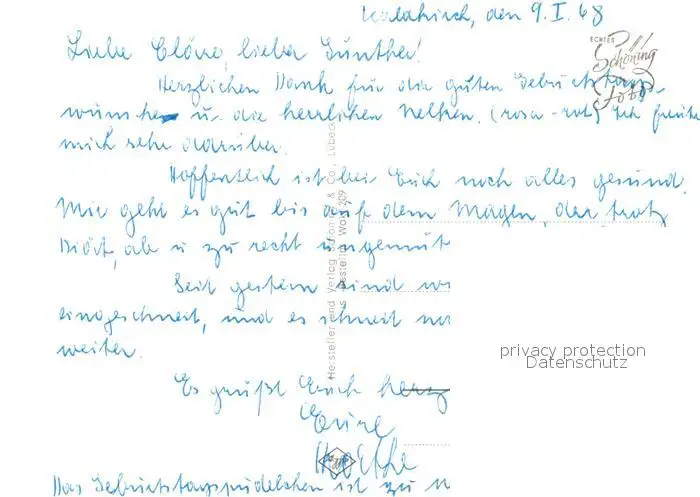 Waldkirch, den 9. I. 68
ECHTES
Schöning
Foto
Liebe Cläre, lieber Günther!
Herzlichen Dank für die guten Geburtstags-
wünsche u. die herrlichen Nelken. (rosa-rot) Ich freute
mich sehr darüber.
Hoffentlich ist bei Euch noch alles gesund.
Mir geht es gut bis auf dem Magen, der trotz
Diät, ab u zu recht ungemüt
Seit gestern sind wi
eingeschneit, und es schneit
weiter.
Es grüßt Euch herz
Eure
Das Geburtstagspudelchen ist zu
Hersteller und Verlag Schöning & Co., Lübeck
privacy protection
Datenschutz